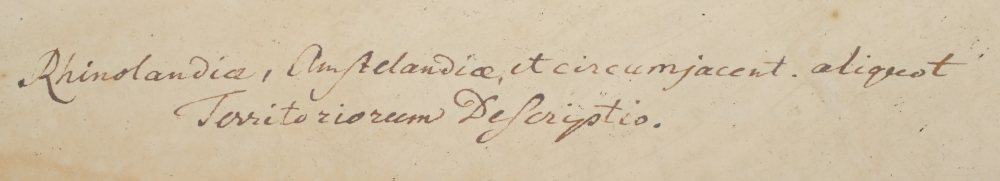 Rhinolandiæ, Amstelandiæ, et circumjacent. aliquot
Territoriorum Descriptio.